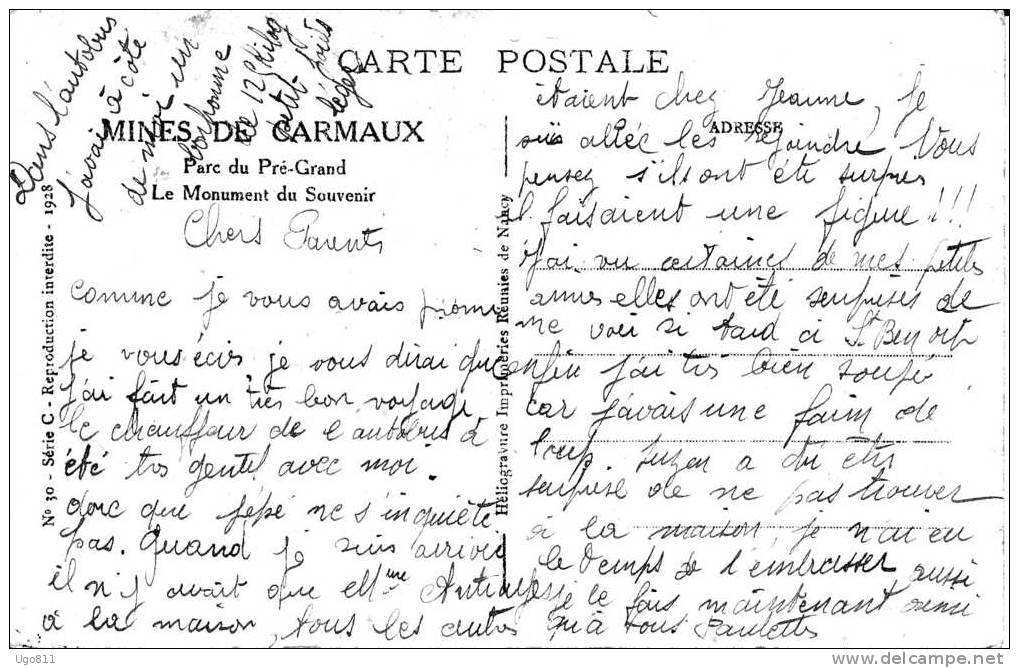 CARTE POSTALE
MINES DE CARMAUX
Parc du Pré-Grand
Le Monument du Souvenir
ADRESSE
Nº 30 - Série C - Reproduction interdite - 1928
Héliogravure Imprimeries Réunies de Nancy
Chers Parents
comme je vous avais promis
je vous écris je vous dirai que
j'ai fait un très bon voyage
le chauffeur de l'autobus à
été très gentil avec moi.
donc que pépé ne s'inquiète
pas. Quand je suis arrivée
il n'y avait que Mme
à la maison, tous les autres
étaient chez Jeanne, je
suis allée les rejoindre Vous
pensez s'ils ont été surpris
faisaient une figure!!!
j'ai vu certaines de mes petites
amies elles ont été surprises de
me voir si tard à St Benoit
enfin j'ai très bien soupé
car j'avais une faim de
loup. Suzon a du être
surprise de ne pas trouver
à la maison, je n'ai eu
le temps de l'embrasser aussi
je le fais maintenant ainsi
qu'à tous Paulette
Dans l'autobus
j'avais à côté
de moi un
bonhomme
de 125 Kilog
petit poids
léger
Ugo811
http://www.delcampe.net